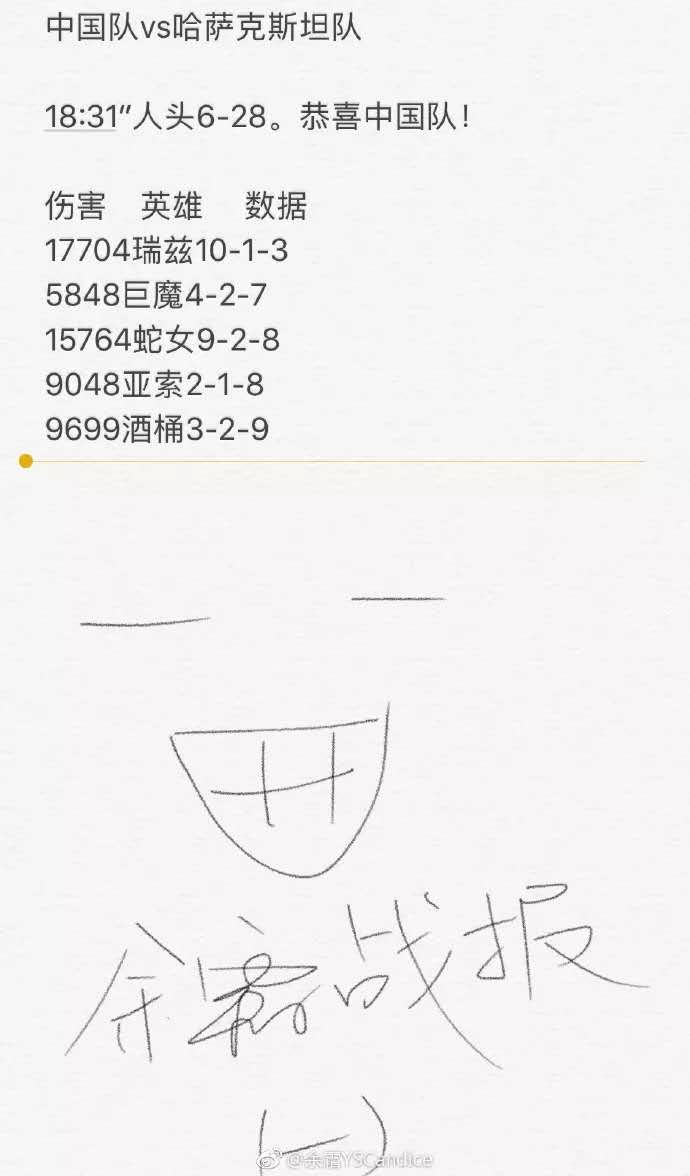 中国队vs哈萨克斯坦队
18:31”人头6-28。恭喜中国队！
伤害 英雄 数据
17704瑞兹10-1-3
5848巨魔4-2-7
15764蛇女9-2-8
9048亚索2-1-8
9699酒桶3-2-9
余霜战报
(一)
@余霜YSCandice